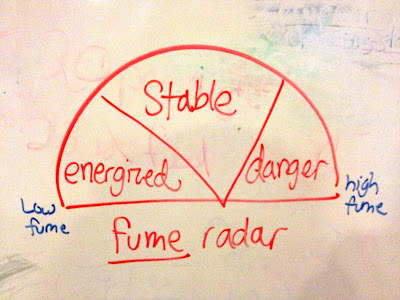 Stable
energized
danger
Low
fume
high
fume
fume radar